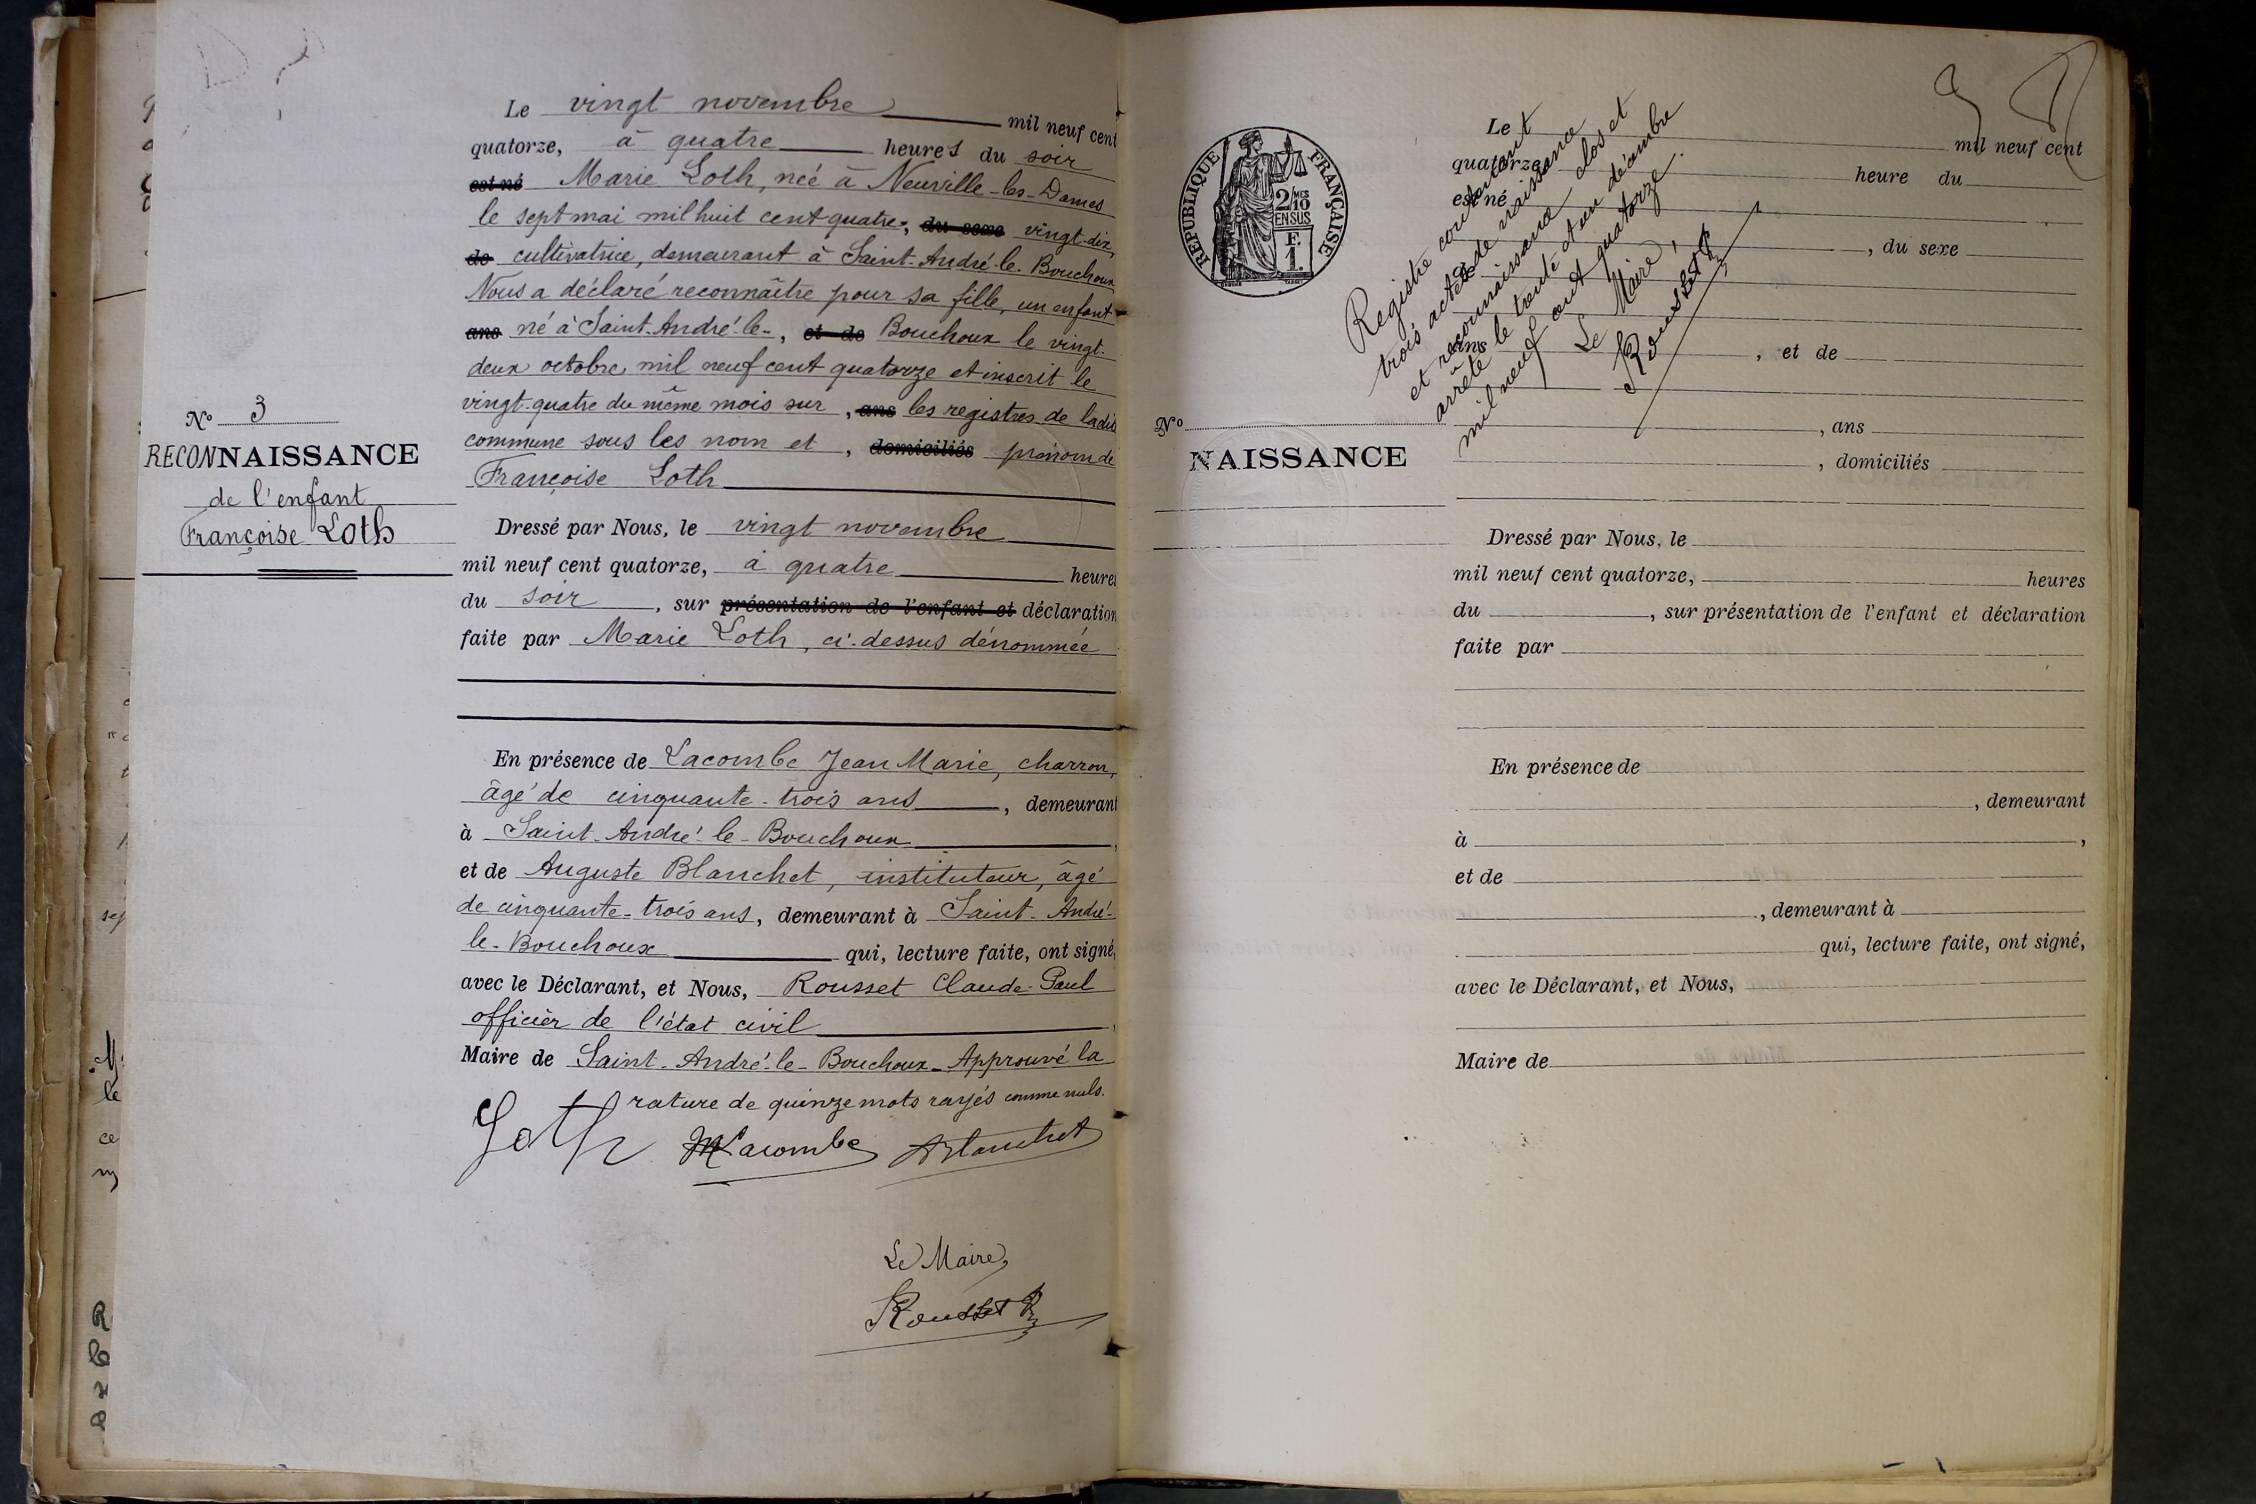 Le vingt novembre mil neuf cent
quatorze, à quatre heures du soir
est né Marie Loth, née à Neuville-les-Dames
le sept mai mil huit cent quatre-, du sexe vingt-dix,
de cultivatrice, demeurant à Saint-André-le-Bouchoux
Nous a déclaré reconnaître pour sa fille, un enfant
ans né à Saint-André-le-, et de Bouchoux le vingt-
deux octobre mil neuf cent quatorze et inscrit le
vingt-quatre du même mois sur, ans les registres de ladite
commune sous les nom et, domiciliés prénom de
Françoise Loth
N° 3
RECONNAISSANCE
de l'enfant
Françoise Loth
Dressé par Nous, le vingt novembre
mil neuf cent quatorze, à quatre heures
du soir, sur présentation de l'enfant et déclaration
faite par Marie Loth, ci-dessus dénommée
En présence de Lacombe Jean Marie, charron,
âgé de cinquante-trois ans, demeurant
à Saint-André-le-Bouchoux,
et de Auguste Blanchet, instituteur, âgé
de cinquante-trois ans, demeurant à Saint-André-
le-Bouchoux qui, lecture faite, ont signé,
avec le Déclarant, et Nous, Rousset Claude-Paul
officier de l'état civil,
Maire de Saint-André-le-Bouchoux - Approuvé la
rature de quinze mots rayés comme nuls.
Loth Lacombe ABlanchet
Le Maire,
Rousset
RÉPUBLIQUE FRANÇAISE
2/10 MES
EN SUS
F.
1.
Registre contenant
trois actes de naissance
et reconnaissance clos et
arrêté le trente et un décembre
mil neuf cent quatorze.
Le Maire,
Rousset
Le mil neuf cent
quatorze heure du
est né
, du sexe
de
ans , et de
, ans
, domiciliés
N°
NAISSANCE
Dressé par Nous, le
mil neuf cent quatorze, heures
du , sur présentation de l'enfant et déclaration
faite par
En présence de
, demeurant
à ,
et de
, demeurant à
qui, lecture faite, ont signé,
avec le Déclarant, et Nous,
Maire de